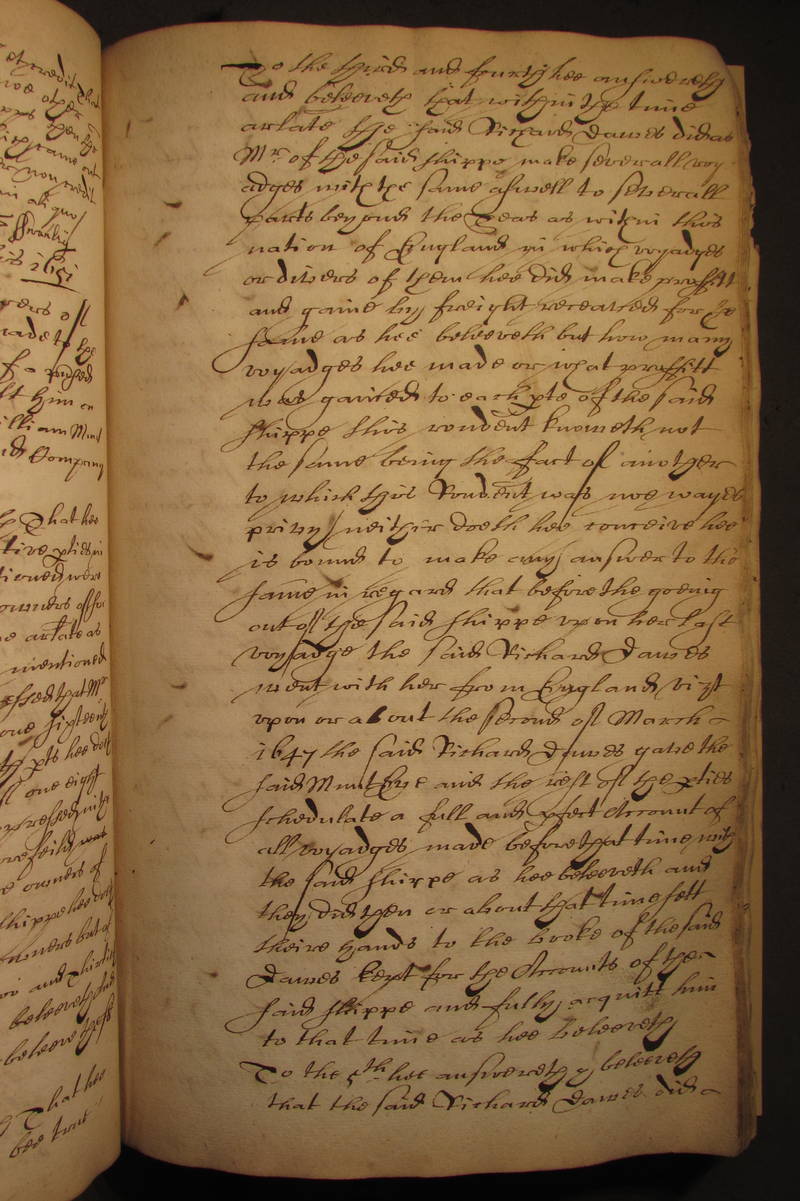 et credit that
hee other
apps then the
came out
or non credit
in aliquo
Swanley
1651
of
made to the
of a
left him on
illiam Mund
and Company
That hee
owners of
the arlate as
mentioned
that Mr
one sixteenth
pts hee doth
of one eight
was
e owners of
shippe hee doth
owners but of
and thirtie
beleeveth
beleeve
That hee
bee true
To the third and fourth hee answereth
and beleeveth that within the time
arlate the said Richard Dawes did as
Mr. of the said shippe make severall voy
adges with the same aswell to severall
parts beyond the Seas as within this
nation of England in which voyadges
or divers of them hee did make proffitt
and gaine by freight receaved for ye
same as hee beleeveth but how many
voyadges hee made or what proffitt
was gained to each pte of the said
shippe this rondent knoweth not
the same being the fact of another
to which this Rondent was noe wayes
privy neither doeth hee conceive hee
is bound to make any answer to the
same in regard that before the goeing
out of the said shippe upon her last
voyadge the said Richard Dawes
went with her from England vizt
upon or about the second of March
1647 the said Richard Dawes gave the
said Munt Eye and the rest of the pties
schedulate a full and pfect Account of
all voyadges made before that time with
the said shippe as hee beleeveth and
they did then or about that time sett
theire hands to the booke of the said
Dawes kept for the Accounts of the
said shippe and fully acquitt him
to that time as hee beleeveth
To the 5th hee answereth & beleeveth
that the said Richard Dawes did